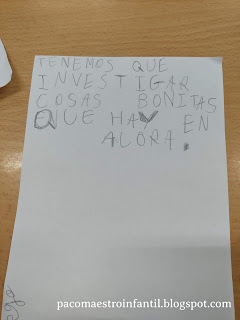 TENEMOS QUE
INVESTIGAR
COSAS BONITAS
QUE HAY EN
ALORA.
pacomaestroinfantil.blogspot.com